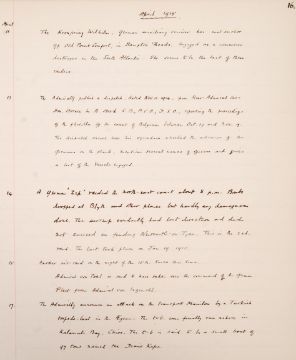 16.
April 1915
April
11 The Kronprinz Wilhelm, German auxiliary cruiser has anchored
off Old Point Comfort, in Hampton Roads. Engaged as a commerce
destroyer in the South Atlantic. She seems to be the last of these
raiders.
13 The Admiralty publish a dispatch, dated Nov., from Rear Admiral Hon.
Hood C.B., M.V.O., D.S.O., reporting the proceedings
of the flotilla off the coast of Belgium between Oct 17 and Nov. 9.
The dispatch shows how his squadron checked the advance of the
Germans on the flank, mentions several names of Officers and gives
a list of the vessels engaged.
14 A German "Zep" reached the north-east coast about 8 p.m. Bombs
dropped at Blyth and other places but hardly any damage was
done. The airship evidently had lost direction and did
not succeed in finding Newcastle on Tyne. This is the
raid. The last took place on Jan 19 1915.
15 Another air raid on the night of the 15th.
Admiral von Pohl is said to have taken over the command of the German
Fleet from Admiral von Ingenohl.
17 The Admiralty announce an attack on the transport Manitou by a Turkish
torpedo boat in the Aegean. The t-b was finally run ashore in
Kalamuti Bay, Chios. The t-b is said to be a small boat of
97 tons named the Demir Hissar.